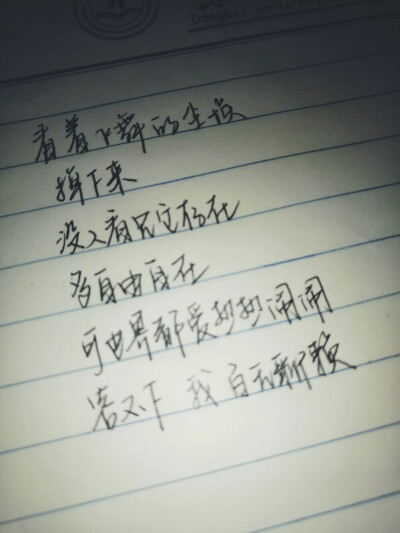 Dongbei University
看着飞舞的尘埃
掉下来
没人看见它存在
多自由自在
可世界都爱热热闹闹
容不下 我百无聊赖